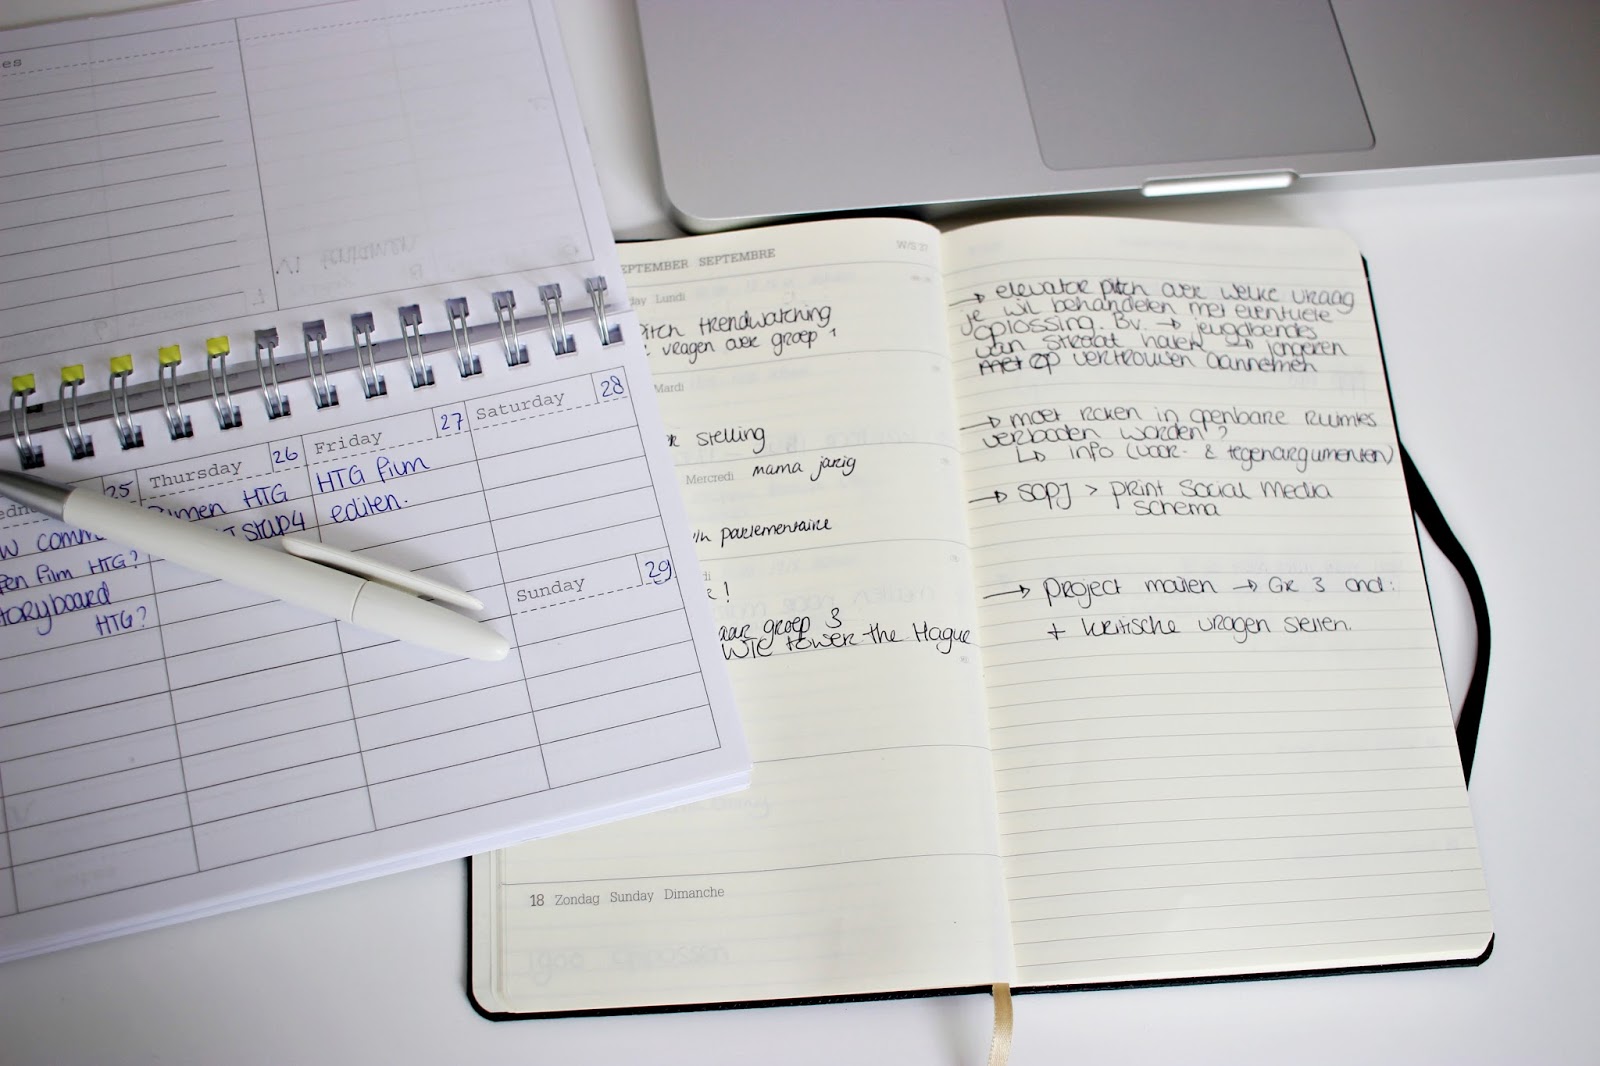 es
25
Thursday 26
HTG
stap4
Friday 27
HTG film
editen.
Saturday 28
Sunday 29
film HTG?
HTG?
EPTEMBER SEPTEMBRE W/S 37
Lundi
trendwatching
vragen over groep 1
Mardi
stelling
Mercredi mama jarig
parlementaire
!
groep 3
tower the Hague
18 Zondag Sunday Dimanche
→ elevator pitch over welke vraag
je wil behandelen met eventuele
oplossing. Bv. → jeugdbendes
van straat halen ↳ jongeren
met op vertrouwen aannemen
→ moet roken in openbare ruimtes
verboden worden?
↳ info (voor- & tegenargumenten)
→ SOPJ > print Social Media
schema
→ project mailen → Gr 3 ond:
+ kritische vragen stellen.